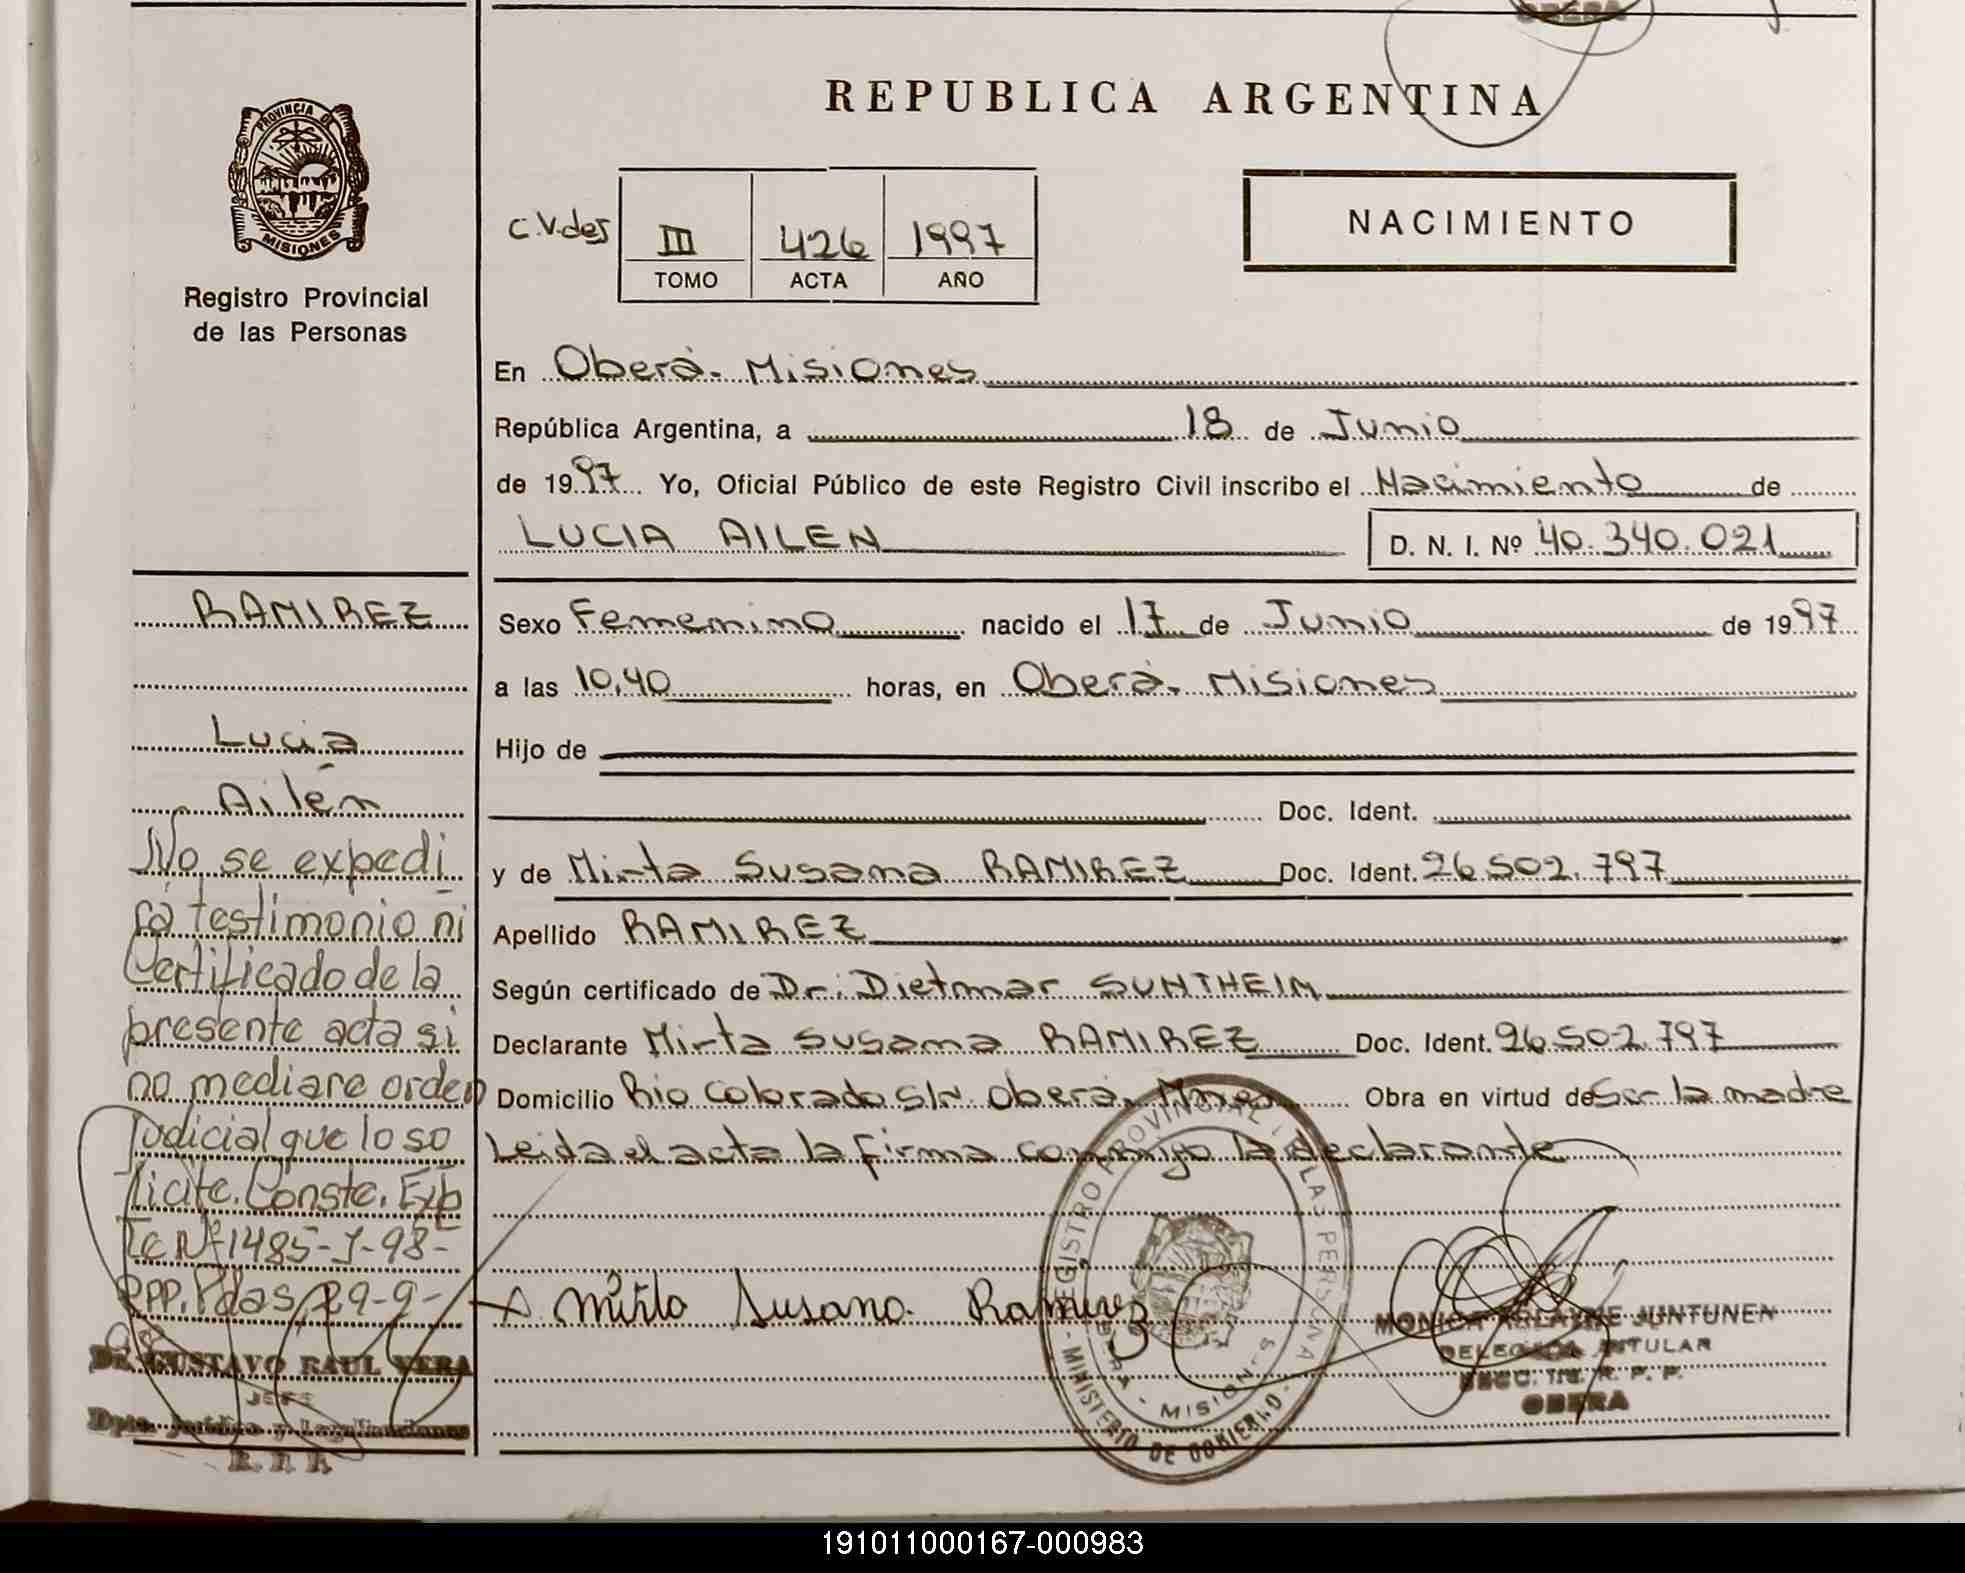 REPUBLICA ARGENTINA
PROVINCIA DE
MISIONES
Registro Provincial
de las Personas
C.V.des
III 426 1997
TOMO ACTA AÑO
NACIMIENTO
En Oberá. Misiones
República Argentina, a 18 de Junio
de 1997 Yo, Oficial Público de este Registro Civil inscribo el Nacimiento de
LUCIA AILEN D. N. I. Nº 40.340.021
Sexo Femenino nacido el 17 de Junio de 1997
a las 10,40 horas, en Oberá. Misiones
Hijo de
Doc. Ident.
y de Mirta Susana RAMIREZ Doc. Ident. 26.502.797
Apellido RAMIREZ
Según certificado de Dr: Dietmar SUNTHEIM
Declarante Mirta Susana RAMIREZ Doc. Ident. 26.502.797
Domicilio Rio Colorado S/N. Oberá. Mnes Obra en virtud de Ser la madre
Leida el acta la firma conmigo la declarante
Mirta Susana Ramirez
REGISTRO PROVINCIAL DE LAS PERSONAS
OBERA - MISIONES
- MINISTERIO DE GOBIERNO -
MONICA ARLAYNE JUNTUNEN
DELEGADA TITULAR
SECC. R. P. P.
OBERA
RAMIREZ
Lucia
Ailén
No se expedi
rá testimonio ni
Certificado de la
presente acta si
no mediare orden
Judicial que lo so
licite. Conste. Exp
te Nº 1485-J-98-
RPP. Pdas, 29-9-
98
Dr. GUSTAVO RAUL VERA
JEFE
Dpto. Jurídico y Legalizaciones
R. P. P.
191011000167-000983